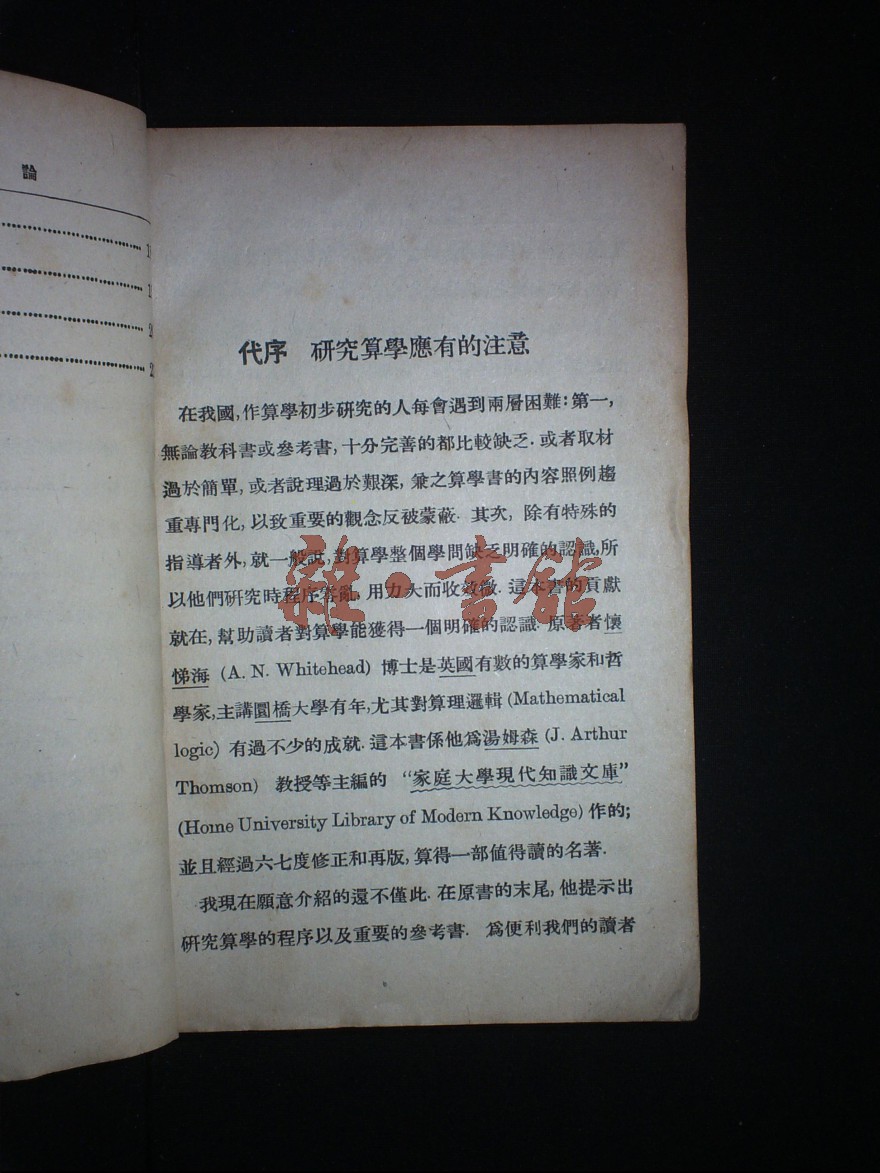 論
代序 研究算學應有的注意
在我國,作算學初步研究的人每會遇到兩層困難:第一,
無論教科書或參考書,十分完善的都比較缺乏.或者取材
過於簡單,或者說理過於艱深,兼之算學書的內容照例趨
重專門化,以致重要的觀念反被蒙蔽.其次,除有特殊的
指導者外,就一般說,對算學整個學問缺乏明確的認識,所
以他們研究時程序紊亂,用力大而收效微.這本書的貢獻
就在,幫助讀者對算學能獲得一個明確的認識.原著者懷
悌海 (A. N. Whitehead) 博士是英國有數的算學家和哲
學家,主講圜橋大學有年,尤其對算理邏輯 (Mathematical
logic) 有過不少的成就.這本書係他爲湯姆森 (J. Arthur
Thomson) 教授等主編的 “家庭大學現代知識文庫”
(Home University Library of Modern Knowledge) 作的;
並且經過六七度修正和再版,算得一部値得讀的名著.
我現在願意介紹的還不僅此.在原書的末尾,他提示出
研究算學的程序以及重要的參考書. 爲便利我們的讀者
雜·書館